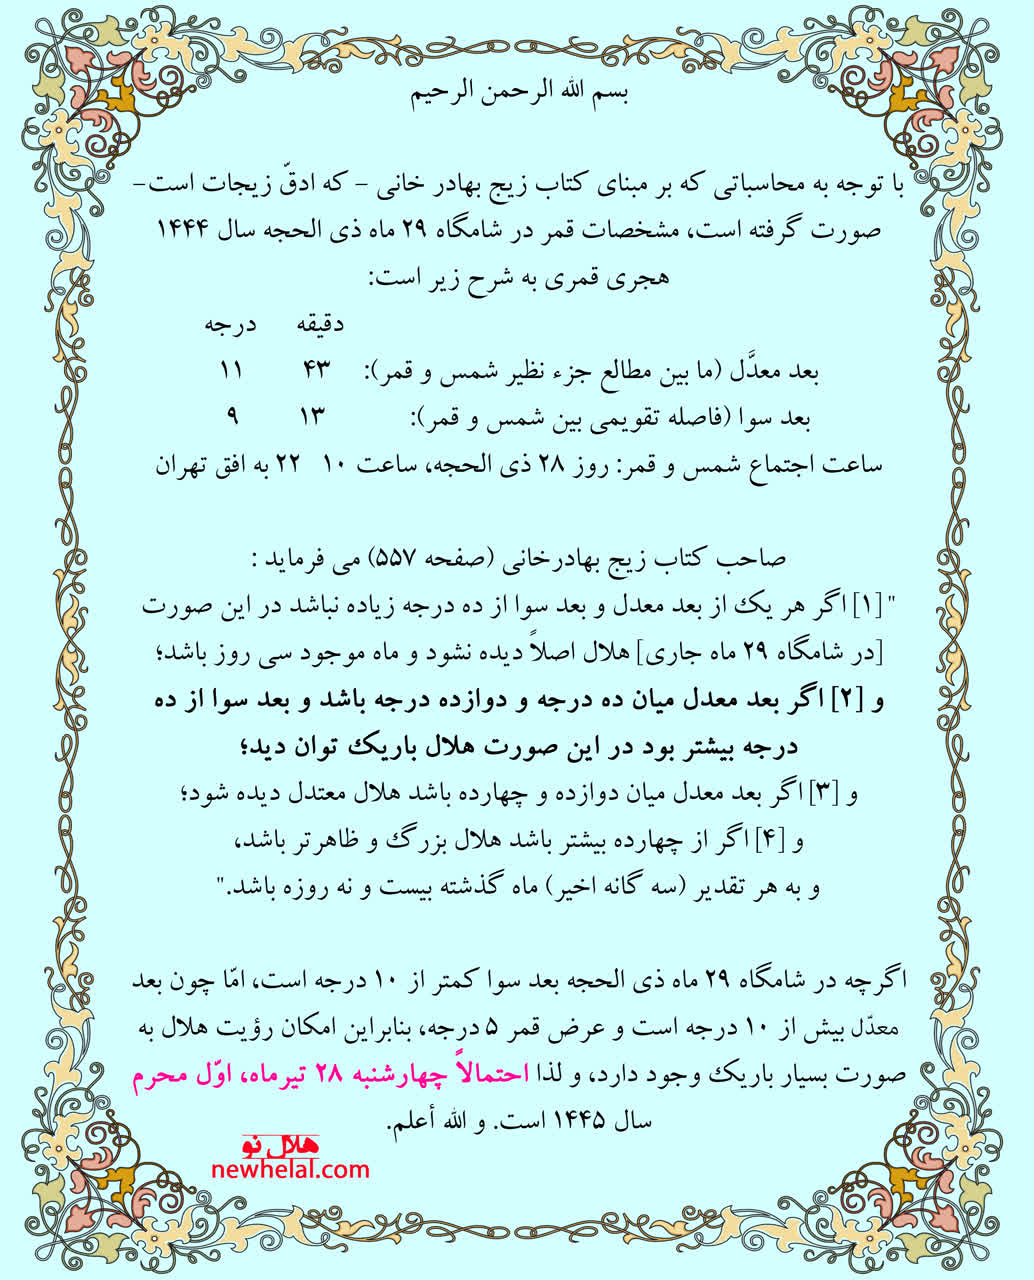 بسم الله الرحمن الرحیم
با توجه به محاسباتی که بر مبنای کتاب زیج بهادر خانی - که ادقّ زیجات است-
صورت گرفته است، مشخصات قمر در شامگاه ۲۹ ماه ذی الحجه سال ۱۴۴۴
هجری قمری به شرح زیر است:
دقیقه درجه
بعد معدَّل (ما بین مطالع جزء نظیر شمس و قمر): ۴۳ ۱۱
بعد سوا (فاصله تقویمی بین شمس و قمر): ۱۳ ۹
ساعت اجتماع شمس و قمر: روز ۲۸ ذی الحجه، ساعت ۱۰ ۲۲ به افق تهران
صاحب کتاب زیج بهادرخانی (صفحه ۵۵۷) می فرماید :
"[۱] اگر هر یک از بعد معدل و بعد سوا از ده درجه زیاده نباشد در این صورت
[در شامگاه ۲۹ ماه جاری] هلال اصلاً دیده نشود و ماه موجود سی روز باشد؛
و [۲] اگر بعد معدل میان ده درجه و دوازده درجه باشد و بعد سوا از ده
درجه بیشتر بود در این صورت هلال باریک توان دید؛
و [۳] اگر بعد معدل میان دوازده و چهارده باشد هلال معتدل دیده شود؛
و [۴] اگر از چهارده بیشتر باشد هلال بزرگ و ظاهرتر باشد،
و به هر تقدیر (سه گانه اخیر) ماه گذشته بیست و نه روزه باشد."
اگرچه در شامگاه ۲۹ ماه ذی الحجه بعد سوا کمتر از ۱۰ درجه است، امّا چون بعد
معدّل بیش از ۱۰ درجه است و عرض قمر ۵ درجه، بنابراین امکان رؤیت هلال به
صورت بسیار باریک وجود دارد، و لذا احتمالاً چهارشنبه ۲۸ تیرماه، اوّل محرم
سال ۱۴۴۵ است. و الله أعلم.
هلال نو
newhelal.com